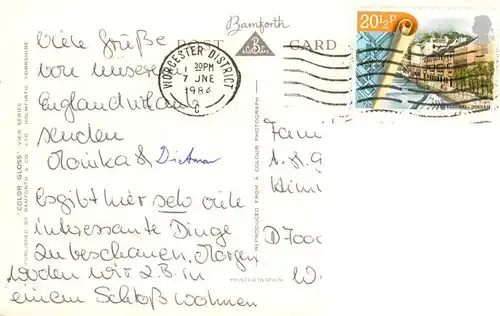 Bamforth
POST CARD
Viele Grüße
von unserem
Englandurlaub
senden
Monika & Dietmar
Es gibt hier sehr viele
interessante Dinge
zu beschauen. Morgen
werden wir z.B. in
einem Schloß wohnen
"COLOR GLOSS" VIEW SERIES
PUBLISHED BY BAMFORTH & CO LTD HOLMFIRTH, YORKSHIRE
REPRODUCED FROM A COLOUR PHOTOGRAPH
PRINTED IN SPAIN
WORCESTER DISTRICT
30PM
7 JNE
1984
C
20½p
D7000
W